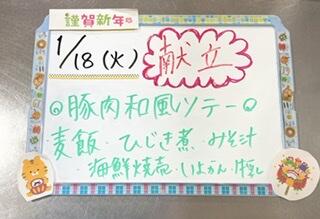 謹賀新年
1/18(火)
献立
◎豚肉和風ソテー◎
・麦飯・ひじき煮・みそ汁
・海鮮焼売・いよかん・牛乳